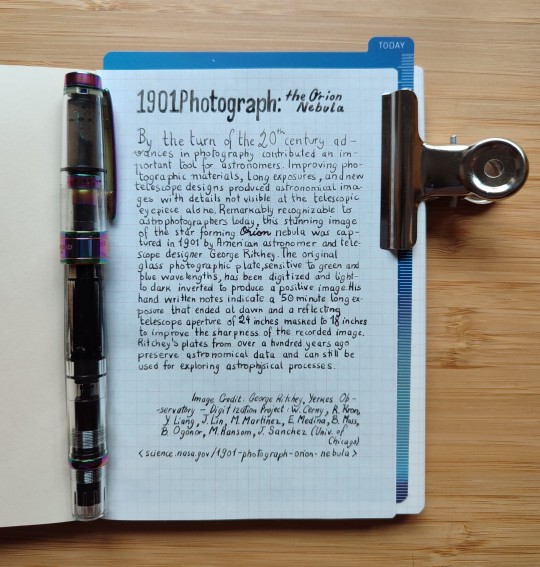 TODAY
1901 Photograph: the Orion
Nebula
By the turn of the 20th century ad-
-vances in photography contributed an im-
portant tool for astronomers. Improving pho-
tographic materials, long exposures, and new
telescope designs produced astronomical ima-
ges with details not visible at the telescopic
eyepiece alone. Remarkably recognizable to
astrophotographers today, this stunning image
of the star forming Orion nebula was cap-
tured in 1901 by American astronomer and tele-
scope designer George Ritchey. The original
glass photographic plate, sensitive to green and
blue wavelengths, has been digitized and light-
to dark inverted to produce a positive image. His
hand written notes indicate a 50 minute long ex-
posure that ended at dawn and a reflecting
telescope aperture of 24 inches masked to 18 inches
to improve the sharpness of the recorded image.
Ritchey's plates from over a hundred years ago
preserve astronomical data and can still be
used for exploring astrophysical processes.
Image Credit: George Ritchey, Yerkes Ob-
-servatory - Digitization Project: W. Cerny, R. Kron,
Y. Liang, J. Lin, M. Martinez, E. Medina, B. Moss,
B. Ogonor, M. Ransom, J. Sanchez (Univ. of
Chicago)
<science.nasa.gov/1901-photograph-orion-nebula>